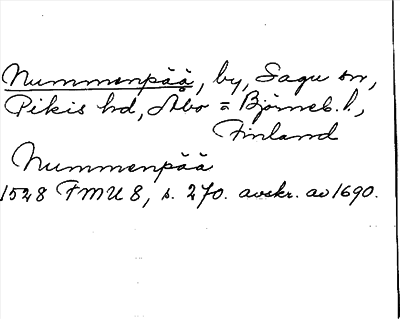 Nummenpää, by, Sagu sn,
Pikis hd, Åbo = Björneb. l.,
Finland
Nummenpää
1528 FMU 8, s. 270. avskr. av 1690.